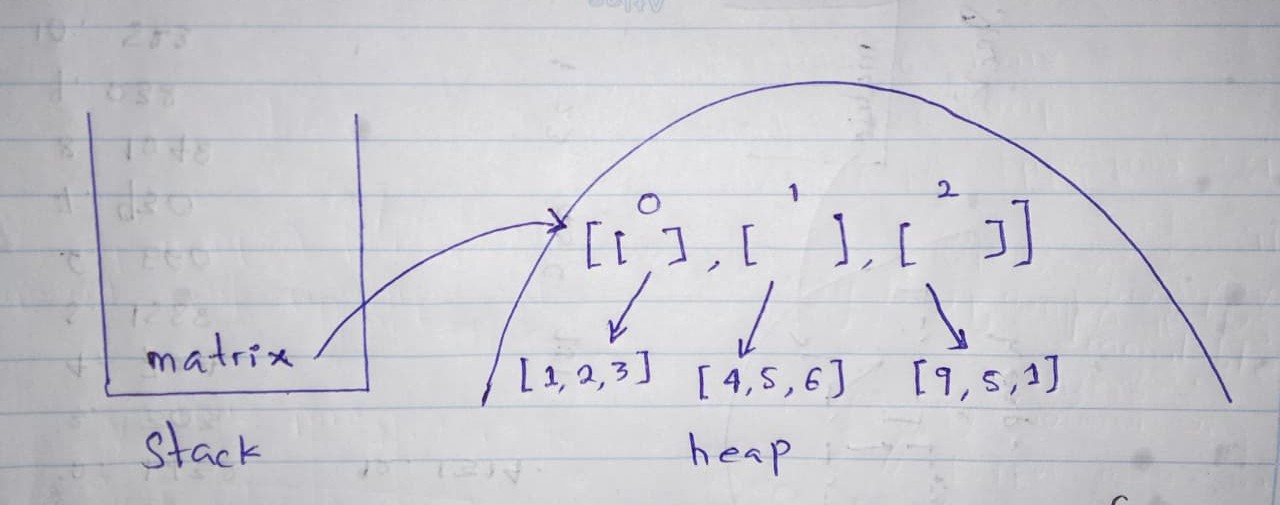 0 1 2
[[ ], [ ], [ ]]
matrix [1,2,3] [4,5,6] [9,5,1]
Stack heap